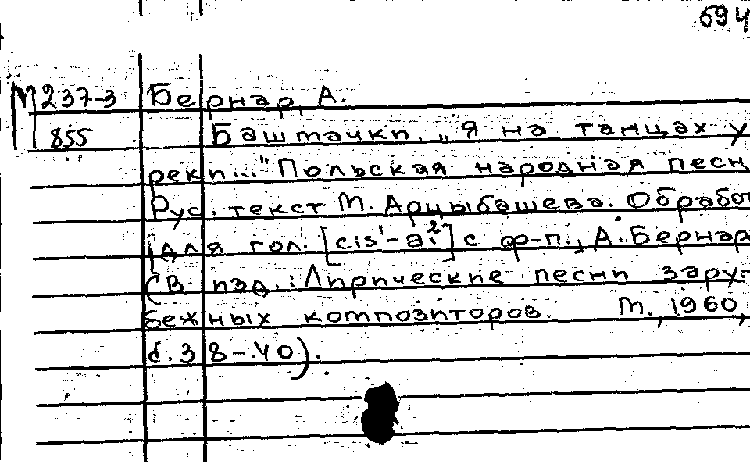 694
М 237-3 Бернар, А.
855 Башмачки. „Я на танцах у
реки..." Польская народная песн
Рус. текст М. Арцыбашева. Обработ
для гол. [cis¹-a²] с ф-п., А. Бернар
(В изд.: Лирические песни заруб
бежных композиторов. М., 1960,
с. 38-40).